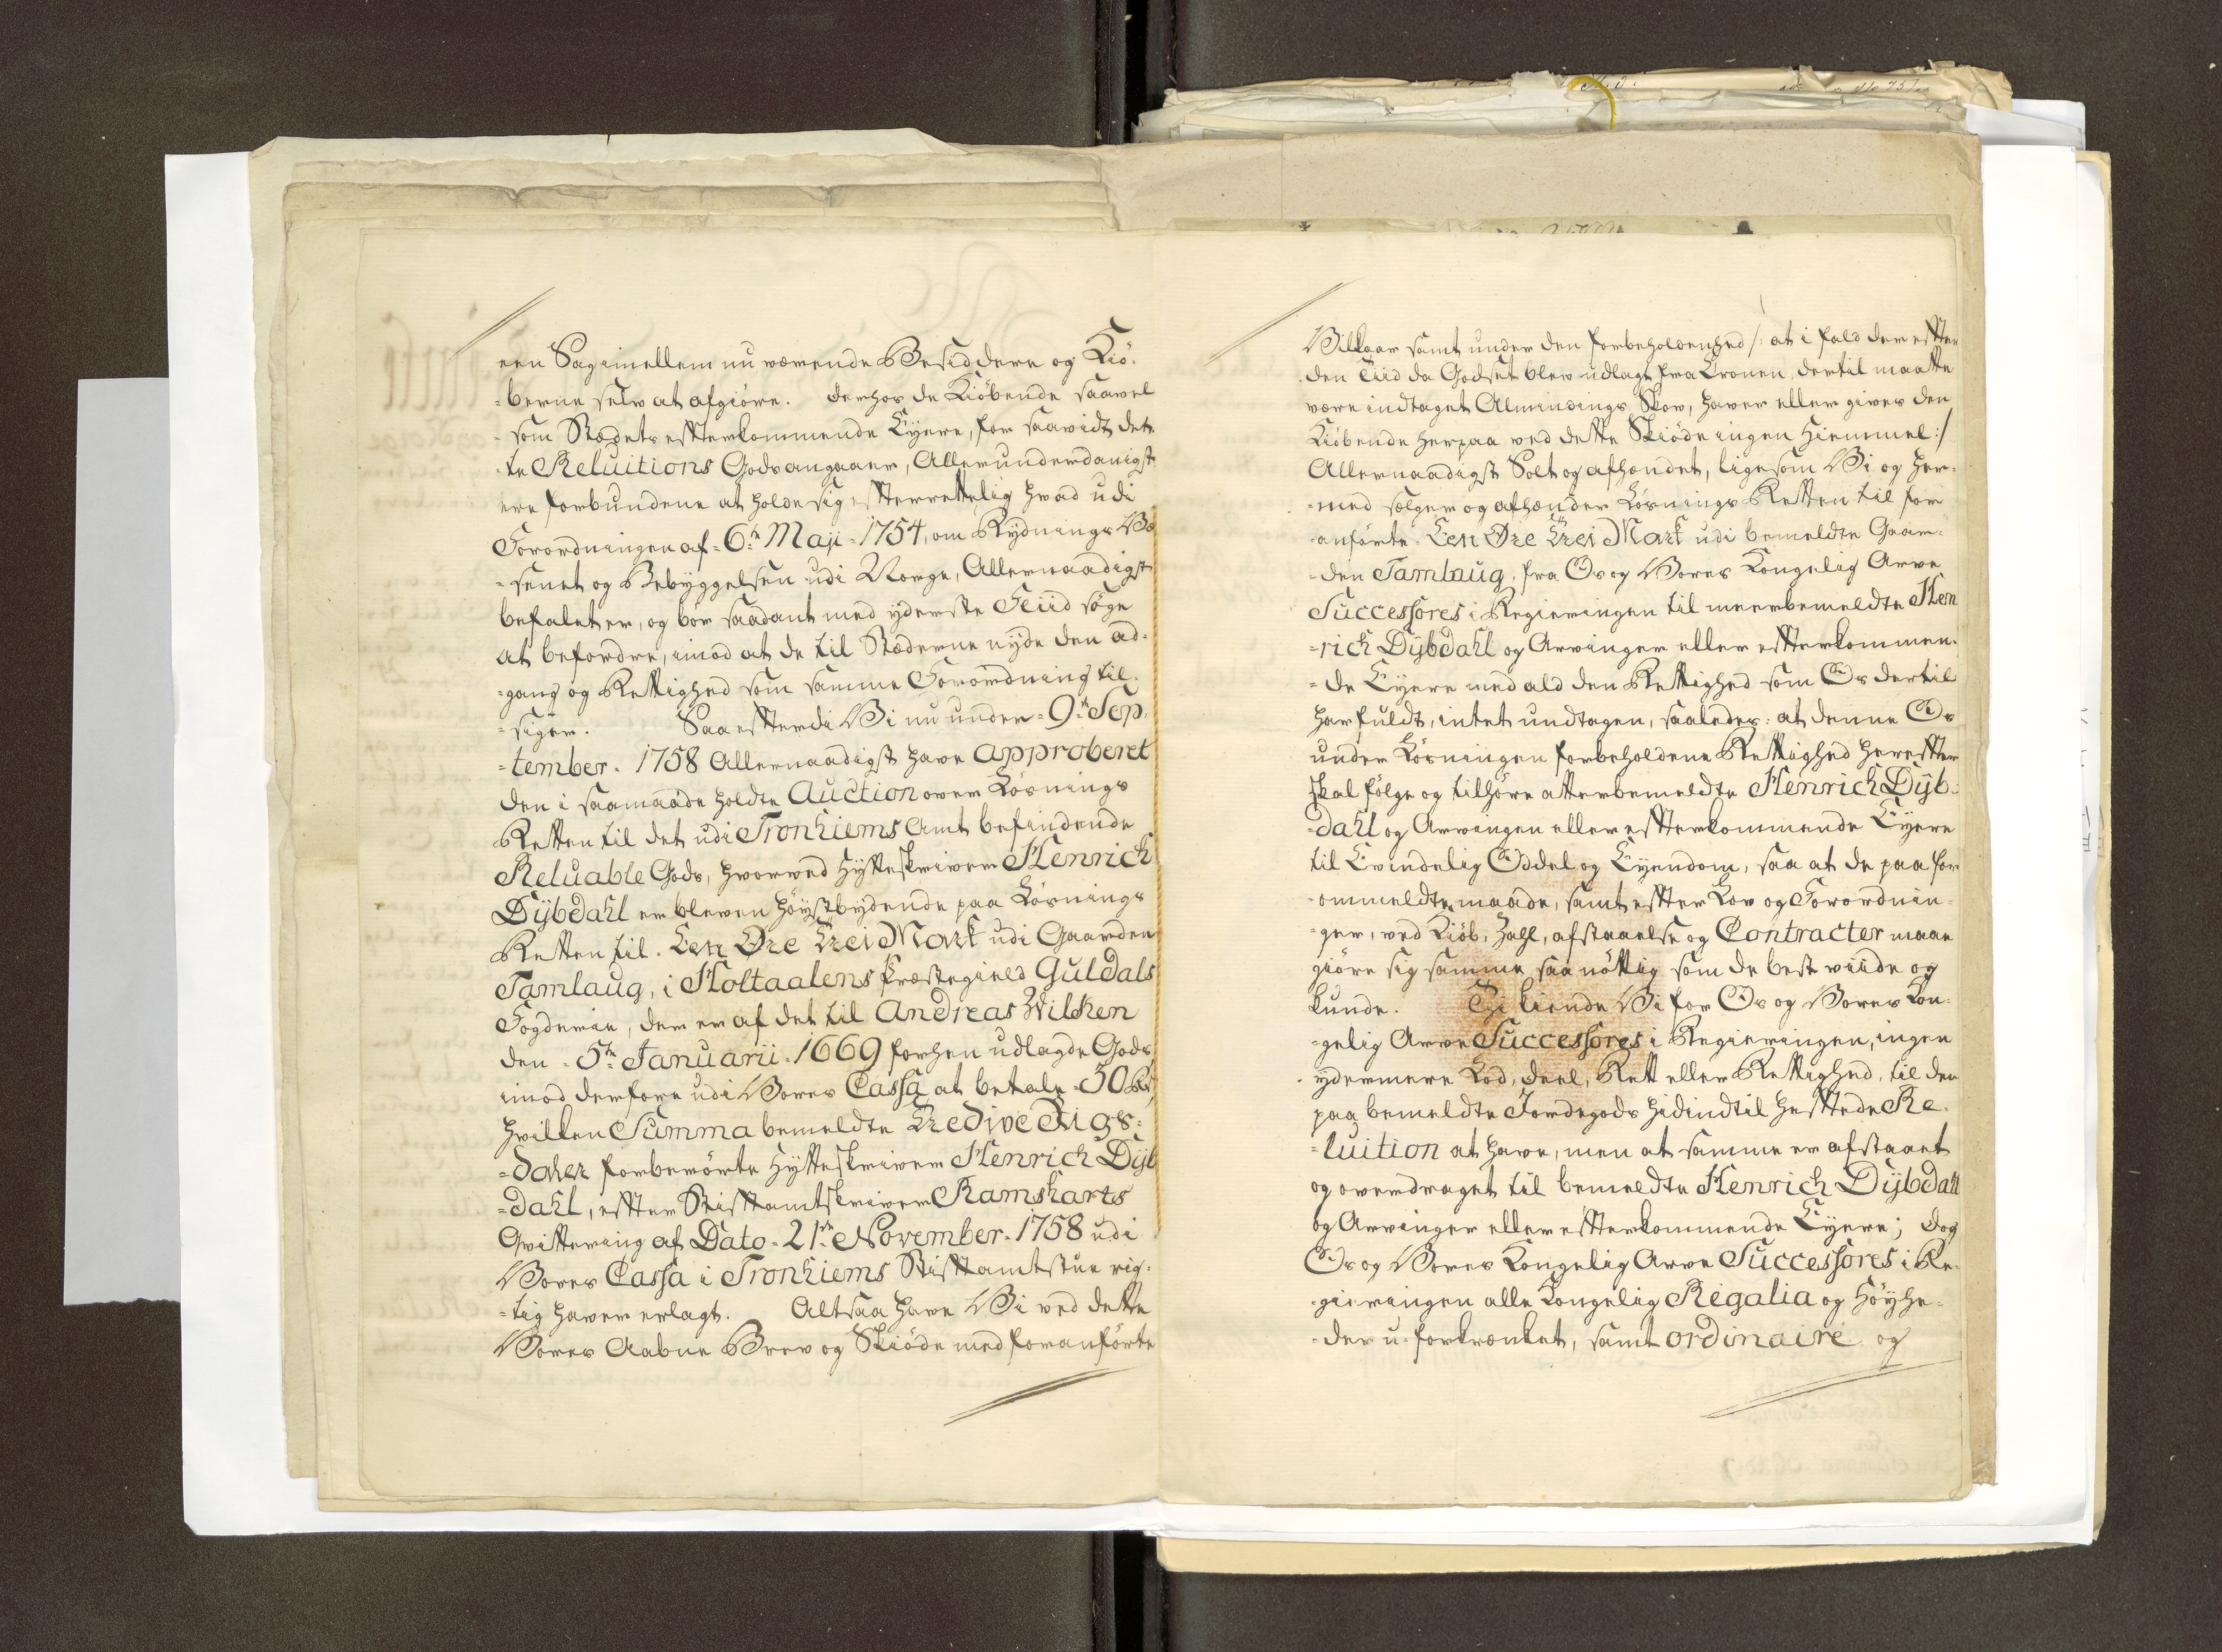 een Sag imellem nu værende Besiddere og Kiö-
=berne selv at afgiöre. Derhos de Kiöbende saavel
=som Stædets effterkommende Eyere, for saavidt det-
te Reluitions Gods angaaer, Allerunderdanigst
ere forbundene at holde sig effterrettelig hvad udi
Forordningen af 6te Maji 1754, om Rydnings Væ
=senet og Bebyggelsen udi Norge, Allernaadigst
befalet er, og bör saadant med yderste Fliid söge
at befordre, imod at de til Stæderne nyde den ad-
=gang og Rettighed som samme Forordning til-
=siger. Saa effterdi Vi nu under 9de Sep-
=tember 1758 Allernaadigst have approberet
den i saamaade holdte Auction over Lösnings
Retten til det udi Tronhiems Amt befindende
Reluable Gods, hvorved Hytteskriver Henrich
Dÿbdahl er bleven höystbydende paa Lösnings
Retten til Een Øre Trei Mark udi Gaarden
Tamlaug, i Holtaalens Præstegield Guldals
Fogderie, der er af det til Andreas Wilken
den 5te Januarii 1669 forhen udlagde Gods,
imod derfore udi Vores Cassa at betale 30 Rd,
hvilken Summa bemeldte Tredive Rigs-
=daler forberörte Hytteskriver Henrich Dÿb
=dahl, effter Stifftamtskriver Ramsharts
Qvittering af Dato 21de November 1758 udi
Vores Cassa i Tronhiems Stifftamtstue rig-
=tig haver erlagt. Altsaa have Vi ved dette
Vores Aabne Brev og Skiöde med foranförte
Vilkaar samt under den forbeholdenhed /: at i fald der effter
den Tiid da Godset blev udlagt fra Cronen, dertil maatte
være indtaget Almindings Skov, haver eller gives den
Kiöbende herpaa ved dette Skiöde ingen Hiemmel :/
Allernaadigst Solt og afhændet, ligesom Vi og her-
=med sælger og afhænder Lösnings Retten til for
anförte Een Øre Trei Mark udi bemeldte Gaar-
=den Tamlaug, fra Os og Vores Kongelig Arve
Successores i Regieringen til meerbemeldte Hen
=rich Dÿbdahl og Arvinger eller effterkommen-
=de Eyere med ald den Rettighed som Os dertil
har fuldt, intet undtagen, saaledes: at denne Os
under Lösningen forbeholdene Rettighed hereffter
skal fölge og tilhöre offterbemeldte Henrich Dÿb-
=dahl og Arvingen eller effterkommende Eyere
til Evindelig Oddel og Eyendom, saa at de paa for
ommeldte maade, samt effter Lov og Forordnin-
=ger, ved Kiöb, Salg, afstaaelse og Contracter maae
giöre sig samme saa nöttig som de best viide og
kunde. Thi kiende Vi for Os og Vores Kon-
=gelig Arve Successores i Regieringen, ingen
ydermere Lod, deel, Rett eller Rettighed, til den
paa bemeldte Jordegods hidindtil hefftede Re-
=luition at have, men at samme er afstaaet
og overdraget til bemeldte Henrich Dÿbdahl
og Arvinger eller effterkommende Eyere; dog
Os og Vores Kongelig Arve Successores i Re-
gieringen alle Kongelig Regalia og Höyhe-
=der u-forkrænket, samt ordinaire og